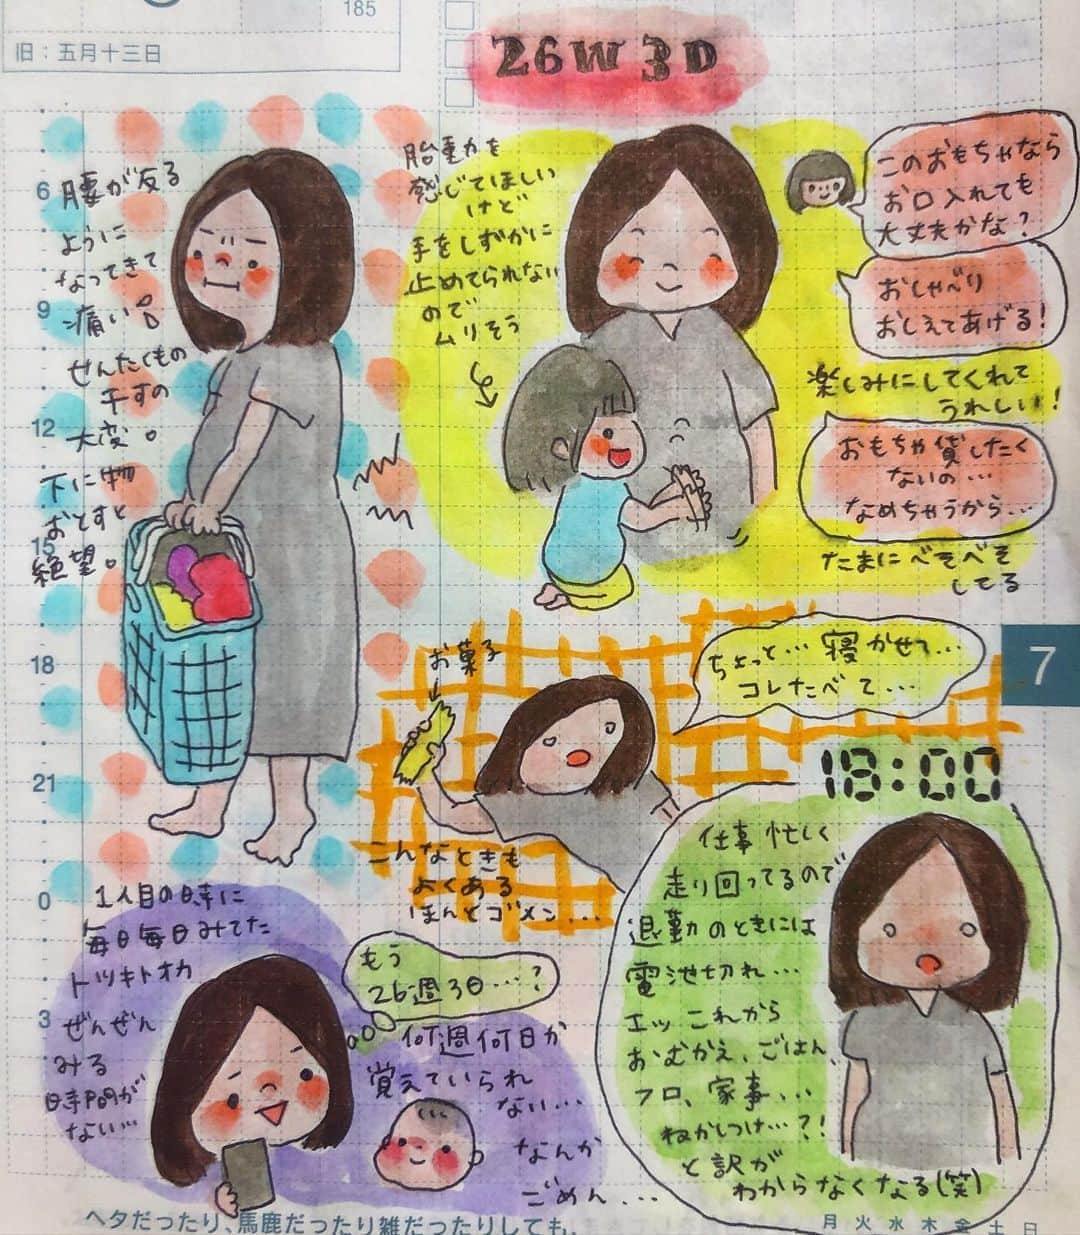 185
旧：五月十三日
26W 3D
6
9
12
15
18
21
0
3
7
腰が反る
ように
なってきて
痛い
せんたくもの
干すの
大変。
下に物
おとすと
絶望。
胎動を
感じてほしい
けど
手をしずかに
止めてられない
ので
ムリそう
このおもちゃなら
お口入れても
大丈夫かな?
おしゃべり
おしえてあげる!
楽しみにしてくれて
うれしい!
おもちゃ貸したく
ないの…
なめちゃうから…
たまにべそべそ
してる
お菓子
ちょっと…寝かせて…
コレたべて…
こんなときも
よくある
ほんとゴメン...
18:00
仕事忙しく
走り回ってるので
退勤のときには
電池切れ…
エッこれから
おむかえ、ごはん、
フロ、家事、..
ねかしつけ…?!
と訳が
わからなくなる(笑)
1人目の時に
毎日毎日みてた
トツキトオカ
ぜんぜん
みる
時間が
ない…
もう
26週3日…?
何週何日か
覚えていられ
ない…
なんか
ごめん...
ヘタだったり、馬鹿だったり雑だったりしても、
月 火 水 木 金 土 日